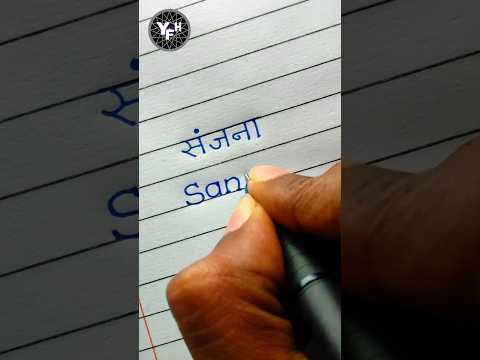 YFH
संजना
San